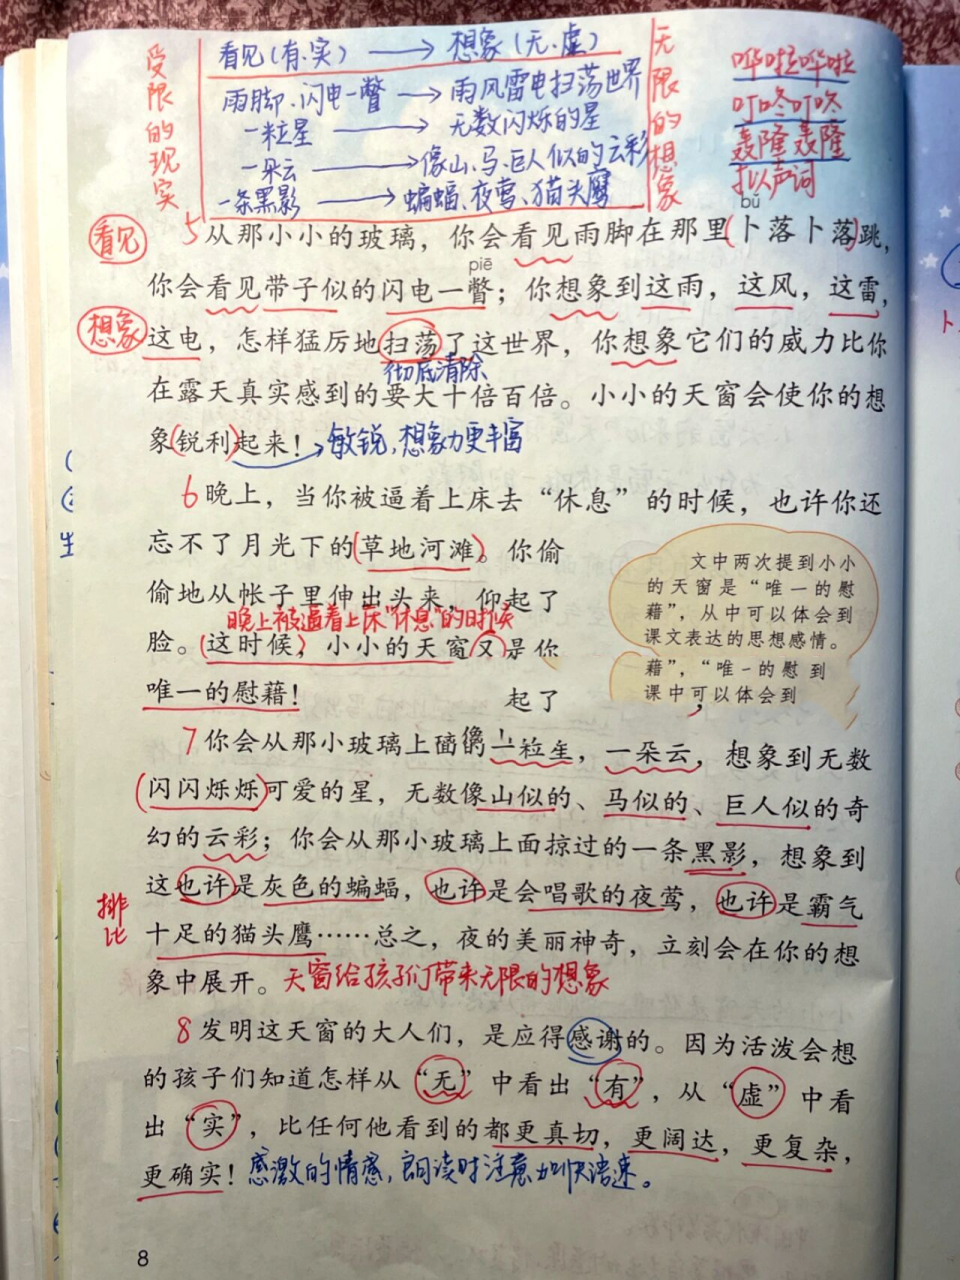 受限的现实
看见（有、实） → 想象（无、虚）
雨脚、闪电一瞥 → 雨风雷电扫荡世界
一粒星 → 无数闪烁的星
一朵云 → 像山、马、巨人似的云彩
一条黑影 → 蝙蝠、夜莺、猫头鹰
无限的想象
哗啦哗啦
叮咚叮咚
轰隆轰隆
拟声词
bǔ
看见
5 从那小小的玻璃，你会看见雨脚在那里卜落卜落跳，
piē
你会看见带子似的闪电一瞥；你想象到这雨，这风，这雷，
想象
这电，怎样猛厉地扫荡了这世界，你想象它们的威力比你
彻底清除
在露天真实感到的要大十倍百倍。小小的天窗会使你的想
象锐利起来！ 敏锐，想象力更丰富
6 晚上，当你被逼着上床去“休息”的时候，也许你还
忘不了月光下的草地河滩。你偷
偷地从帐子里伸出头来，仰起了
晚上被逼着上床“休息”的时候
脸。这时候，小小的天窗又是你
唯一的慰藉！
起了
文中两次提到小小
的天窗是“唯一的慰
藉”，从中可以体会到
课文表达的思想感情。
藉”，“唯一的慰 到
课中可以体会到
7 你会从那小玻璃上面的一粒星，一朵云，想象到无数
闪闪烁烁可爱的星，无数像山似的、马似的、巨人似的奇
幻的云彩；你会从那小玻璃上面掠过的一条黑影，想象到
这也许是灰色的蝙蝠，也许是会唱歌的夜莺，也许是霸气
排比
十足的猫头鹰……总之，夜的美丽神奇，立刻会在你的想
象中展开。 天窗给孩子们带来无限的想象
8 发明这天窗的大人们，是应得感谢的。因为活泼会想
的孩子们知道怎样从“无”中看出“有”，从“虚”中看
出“实”，比任何他看到的都更真切，更阔达，更复杂，
更确实！ 感激的情感，朗读时注意加快语速。
8